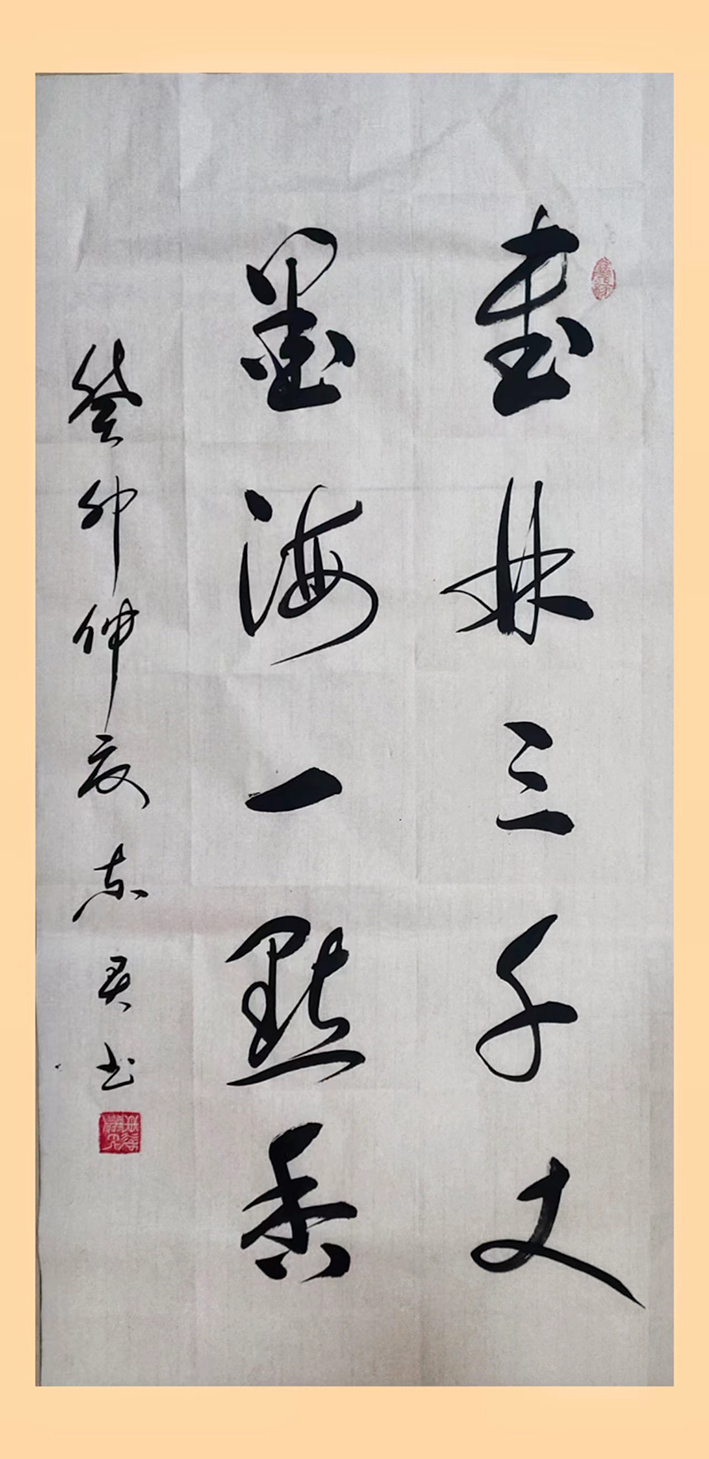 書林三千丈
墨海一點香
癸卯仲夏东君书